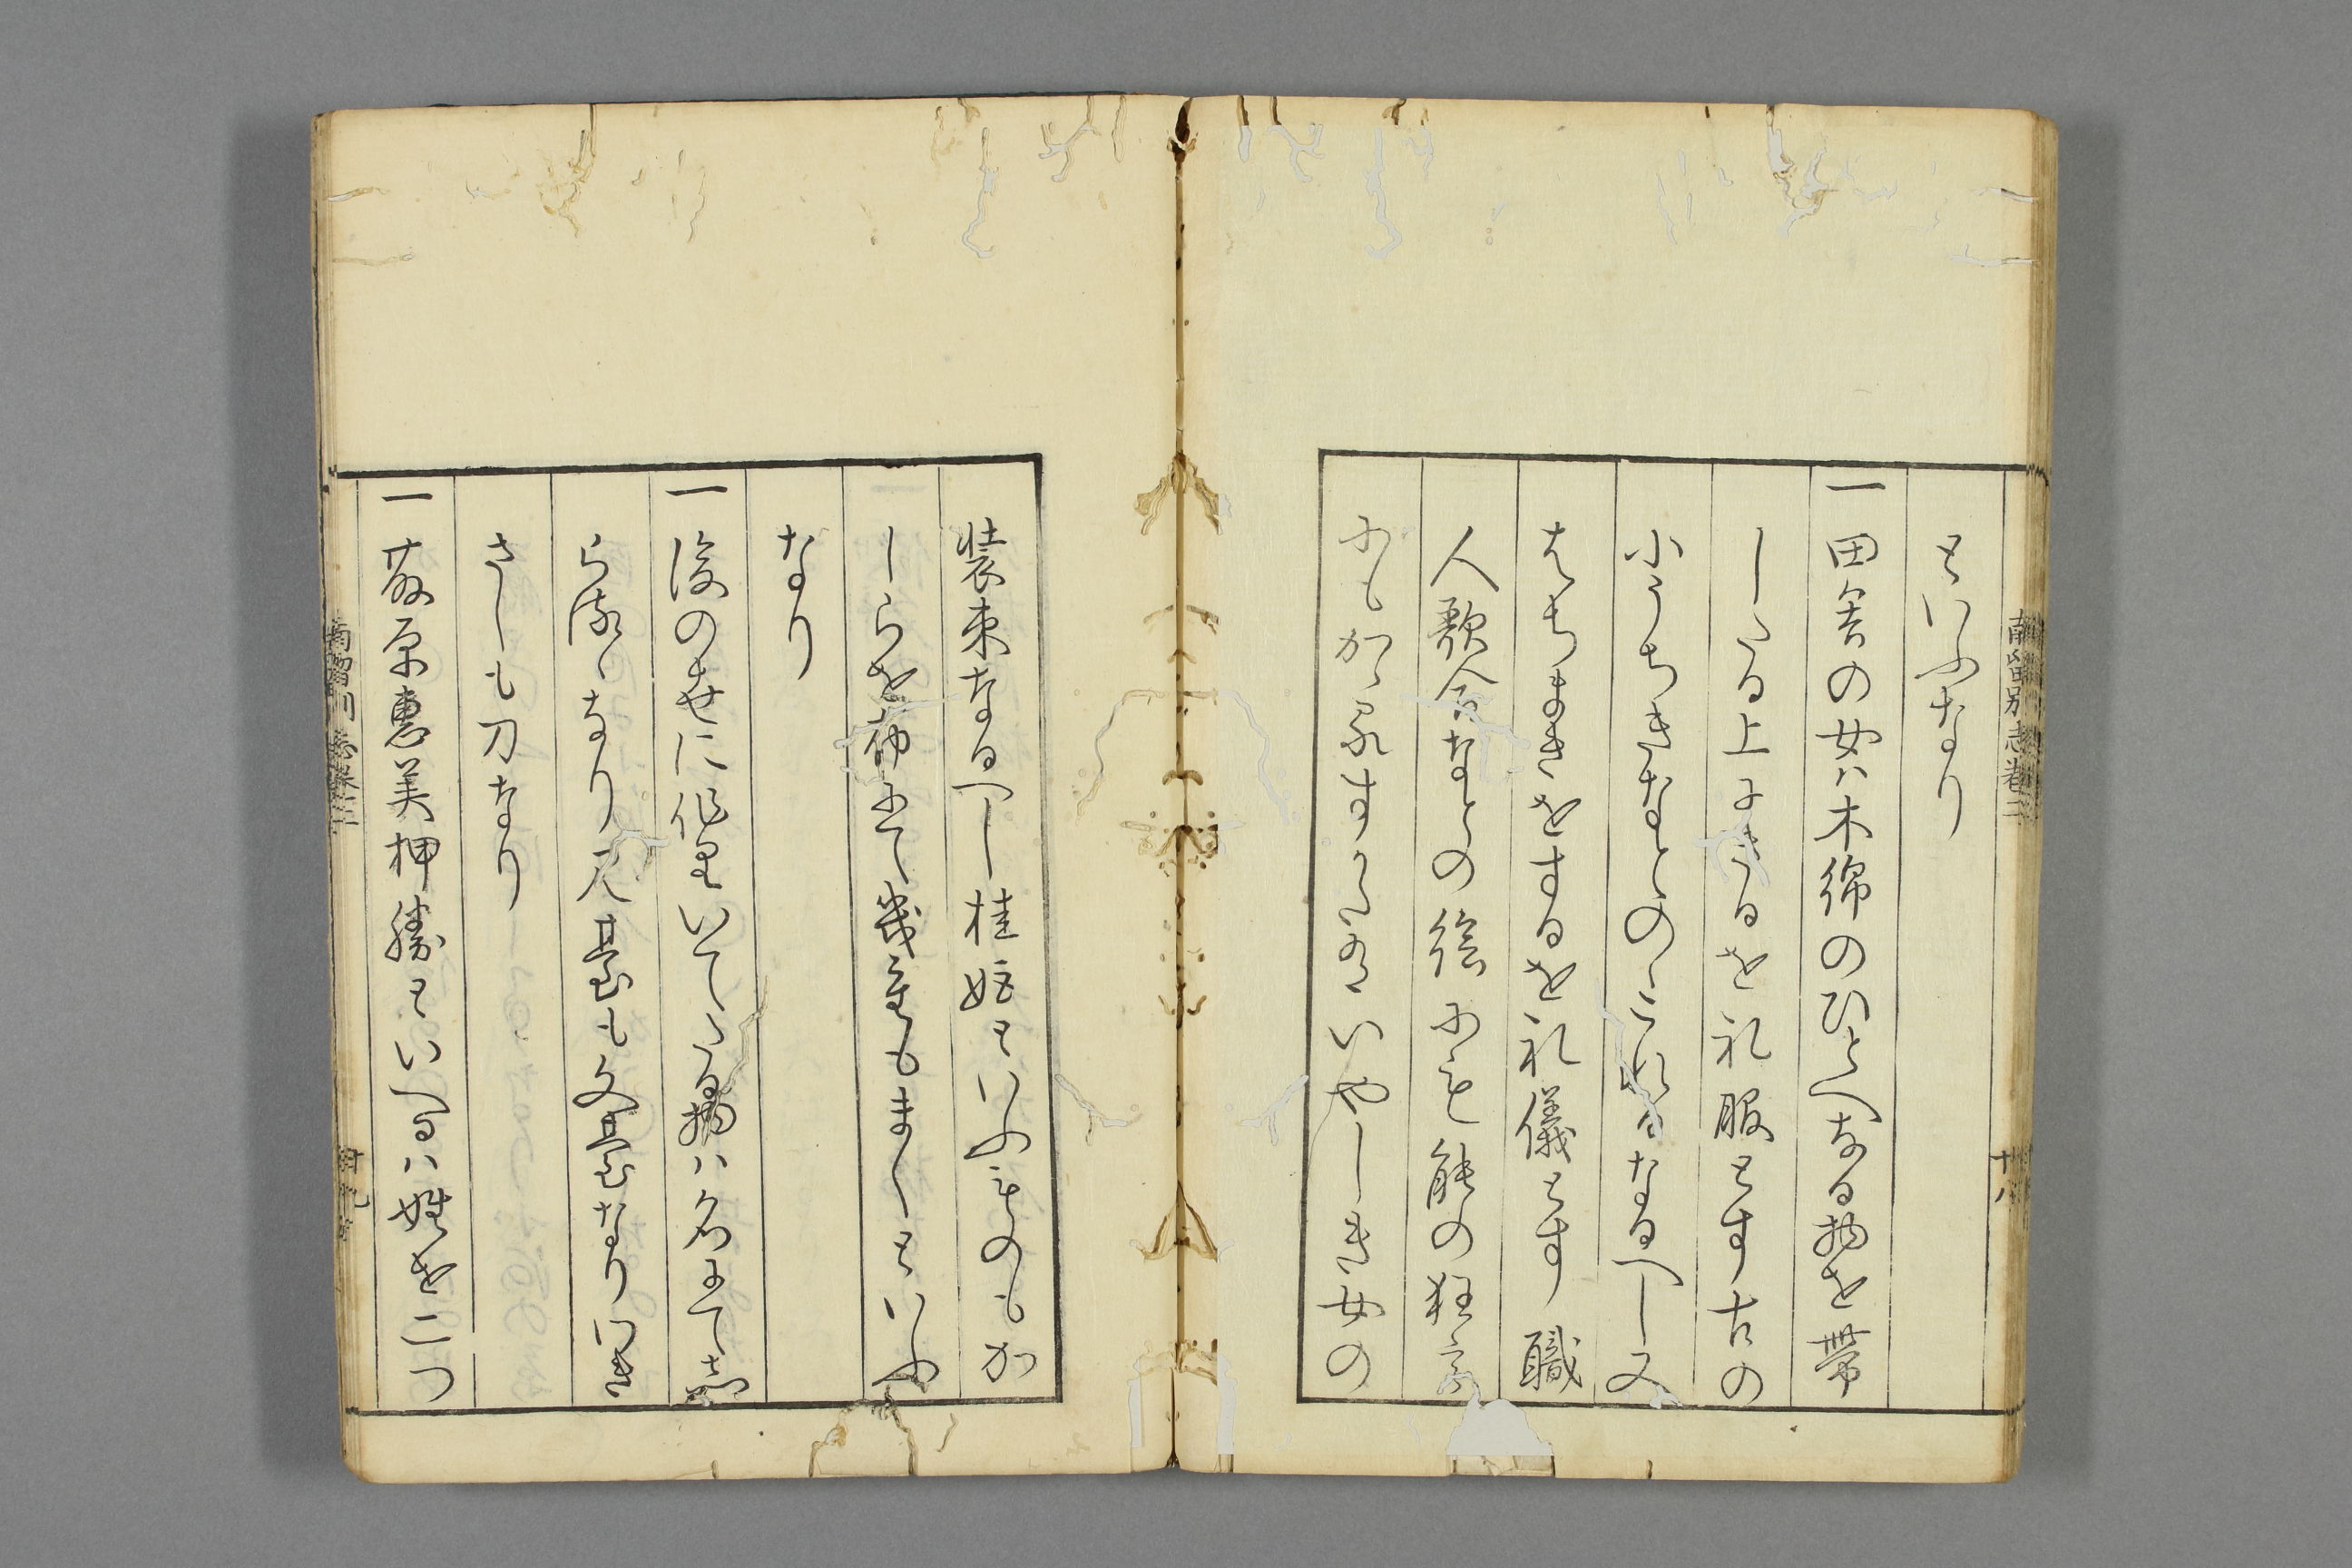 南留別志巻三
十八
といふなり
一田舎の女ハ木綿のひとへなる物を帯
したる上にきるを礼服とす古の
小うちきなとのこれるなるへし又
はちまきをするを礼儀とす職
人歌合なとの絵にも能の狂言
にもかくするハいやしき女の
装束なるへし桂姫といふものもか
しらを布にて幾重もまくといふ
なり
一後の世に作りいてたる物ハ名にてし
らるゝなり几帳も文台なり
さしも刀なり
一藤原恵美押勝といへるハ姓を二つ
南留別志巻三
十九